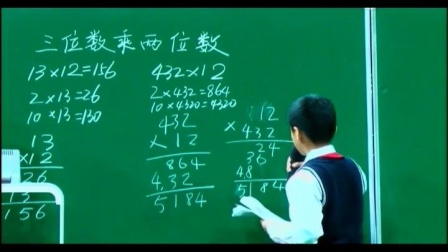 三位数乘两位数
13×12=156
2×13=26
10×13=130
13
×12
26
13
156
432×12
2×432=864
10×4320=4320
432
×12
864
432
5184
12
×432
24
36
48
5184